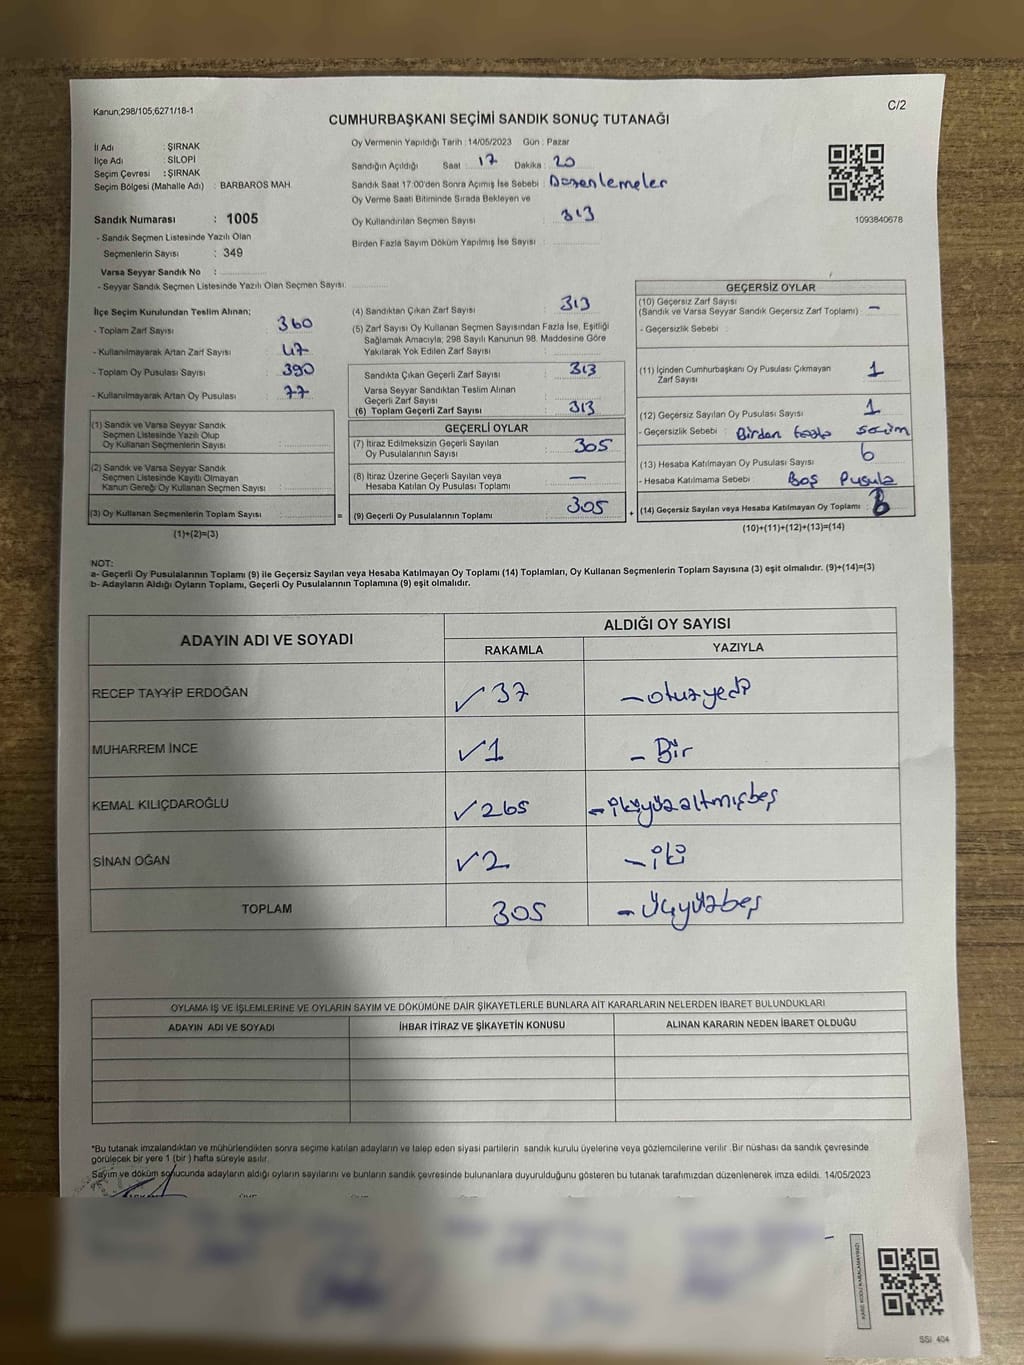 Kanun;298/105,6271/18-1
C/2
CUMHURBAŞKANI SEÇİMİ SANDIK SONUÇ TUTANAĞI
İl Adı : ŞIRNAK
İlçe Adı : SİLOPİ
Seçim Çevresi : ŞIRNAK
Seçim Bölgesi (Mahalle Adı) : BARBAROS MAH.
Sandık Numarası : 1005
- Sandık Seçmen Listesinde Yazılı Olan
Seçmenlerin Sayısı : 349
Varsa Seyyar Sandık No :
- Seyyar Sandık Seçmen Listesinde Yazılı Olan Seçmen Sayısı:
Oy Vermenin Yapıldığı Tarih : 14/05/2023 Gün : Pazar
Sandığın Açıldığı Saat : 17 Dakika : 20
Sandık Saat 17:00'den Sonra Açılmış İse Sebebi : Düzenlemeler
Oy Verme Saati Bitiminde Sırada Bekleyen ve
Oy Kullandırılan Seçmen Sayısı : 313
Birden Fazla Sayım Döküm Yapılmış İse Sayısı :
1093840678
İlçe Seçim Kurulundan Teslim Alınan;
- Toplam Zarf Sayısı : 360
- Kullanılmayarak Artan Zarf Sayısı : 47
- Toplam Oy Pusulası Sayısı : 390
- Kullanılmayarak Artan Oy Pusulası : 77
(1) Sandık ve Varsa Seyyar Sandık
Seçmen Listesinde Yazılı Olup
Oy Kullanan Seçmenlerin Sayısı :
(2) Sandık ve Varsa Seyyar Sandık
Seçmen Listesinde Kayıtlı Olmayan
Kanun Gereği Oy Kullanan Seçmen Sayısı :
(3) Oy Kullanan Seçmenlerin Toplam Sayısı : =
(1)+(2)=(3)
(4) Sandıktan Çıkan Zarf Sayısı : 313
(5) Zarf Sayısı Oy Kullanan Seçmen Sayısından Fazla İse, Eşitliği
Sağlamak Amacıyla; 298 Sayılı Kanunun 98. Maddesine Göre
Yakılarak Yok Edilen Zarf Sayısı :
Sandıkta Çıkan Geçerli Zarf Sayısı : 313
Varsa Seyyar Sandıktan Teslim Alınan
Geçerli Zarf Sayısı :
(6) Toplam Geçerli Zarf Sayısı : 313
GEÇERLİ OYLAR
(7) İtiraz Edilmeksizin Geçerli Sayılan
Oy Pusulalarının Sayısı : 305
(8) İtiraz Üzerine Geçerli Sayılan veya
Hesaba Katılan Oy Pusulası Toplamı : —
(9) Geçerli Oy Pusulalarının Toplamı : 305 +
GEÇERSİZ OYLAR
(10) Geçersiz Zarf Sayısı
(Sandık ve Varsa Seyyar Sandık Geçersiz Zarf Toplamı) : —
- Geçersizlik Sebebi :
(11) İçinden Cumhurbaşkanı Oy Pusulası Çıkmayan
Zarf Sayısı : 1
(12) Geçersiz Sayılan Oy Pusulası Sayısı : 1
- Geçersizlik Sebebi : Birden fazla seçim
(13) Hesaba Katılmayan Oy Pusulası Sayısı : 6
- Hesaba Katılmama Sebebi : Boş Pusula
(14) Geçersiz Sayılan veya Hesaba Katılmayan Oy Toplamı : 8
(10)+(11)+(12)+(13)=(14)
NOT:
a- Geçerli Oy Pusulalarının Toplamı (9) ile Geçersiz Sayılan veya Hesaba Katılmayan Oy Toplamı (14) Toplamları, Oy Kullanan Seçmenlerin Toplam Sayısına (3) eşit olmalıdır. (9)+(14)=(3)
b- Adayların Aldığı Oyların Toplamı, Geçerli Oy Pusulalarının Toplamına (9) eşit olmalıdır.
ADAYIN ADI VE SOYADI
ALDIĞI OY SAYISI
RAKAMLA YAZIYLA
RECEP TAYYİP ERDOĞAN ✓ 37 – otuzyedi
MUHARREM İNCE ✓ 1 – Bir
KEMAL KILIÇDAROĞLU ✓ 265 – ikiyüzaltmışbeş
SİNAN OĞAN ✓ 2 – iki
TOPLAM 305 – üçyüzbeş
OYLAMA İŞ VE İŞLEMLERİNE VE OYLARIN SAYIM VE DÖKÜMÜNE DAİR ŞİKAYETLERLE BUNLARA AİT KARARLARIN NELERDEN İBARET BULUNDUKLARI
ADAYIN ADI VE SOYADI İHBAR İTİRAZ VE ŞİKAYETİN KONUSU ALINAN KARARIN NEDEN İBARET OLDUĞU
*Bu tutanak imzalandıktan ve mühürlendikten sonra seçime katılan adayların ve talep eden siyasi partilerin sandık kurulu üyelerine veya gözlemcilerine verilir. Bir nüshası da sandık çevresinde
görülecek bir yere 1 (bir) hafta süreyle asılır.
Sayım ve döküm sonucunda adayların aldığı oyların sayılarını ve bunların sandık çevresinde bulunanlara duyurulduğunu gösteren bu tutanak tarafımızdan düzenlenerek imza edildi. 14/05/2023
SSI 404